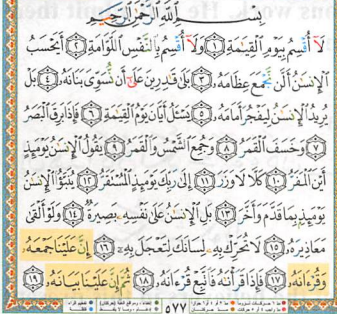 بِسْمِ اللَّهِ الرَّحْمَٰنِ الرَّحِيمِ
لَآ أُقْسِمُ بِيَوْمِ ٱلْقِيَٰمَةِ ١ وَلَآ أُقْسِمُ بِٱلنَّفْسِ ٱللَّوَّامَةِ ٢ أَيَحْسَبُ
ٱلْإِنسَٰنُ أَلَّن نَّجْمَعَ عِظَامَهُۥ ٣ بَلَىٰ قَٰدِرِينَ عَلَىٰٓ أَن نُّسَوِّىَ بَنَانَهُۥ ٤ بَلْ
يُرِيدُ ٱلْإِنسَٰنُ لِيَفْجُرَ أَمَامَهُۥ ٥ يَسْـَٔلُ أَيَّانَ يَوْمُ ٱلْقِيَٰمَةِ ٦ فَإِذَا بَرِقَ ٱلْبَصَرُ
٧ وَخَسَفَ ٱلْقَمَرُ ٨ وَجُمِعَ ٱلشَّمْسُ وَٱلْقَمَرُ ٩ يَقُولُ ٱلْإِنسَٰنُ يَوْمَئِذٍ
أَيْنَ ٱلْمَفَرُّ ١٠ كَلَّا لَا وَزَرَ ١١ إِلَىٰ رَبِّكَ يَوْمَئِذٍ ٱلْمُسْتَقَرُّ ١٢ يُنَبَّؤُا۟ ٱلْإِنسَٰنُ
يَوْمَئِذٍۭ بِمَا قَدَّمَ وَأَخَّرَ ١٣ بَلِ ٱلْإِنسَٰنُ عَلَىٰ نَفْسِهِۦ بَصِيرَةٌ ١٤ وَلَوْ أَلْقَىٰ
مَعَاذِيرَهُۥ ١٥ لَا تُحَرِّكْ بِهِۦ لِسَانَكَ لِتَعْجَلَ بِهِۦٓ ١٦ إِنَّ عَلَيْنَا جَمْعَهُۥ
وَقُرْءَانَهُۥ ١٧ فَإِذَا قَرَأْنَٰهُ فَٱتَّبِعْ قُرْءَانَهُۥ ١٨ ثُمَّ إِنَّ عَلَيْنَا بَيَانَهُۥ ١٩
٥٧٧